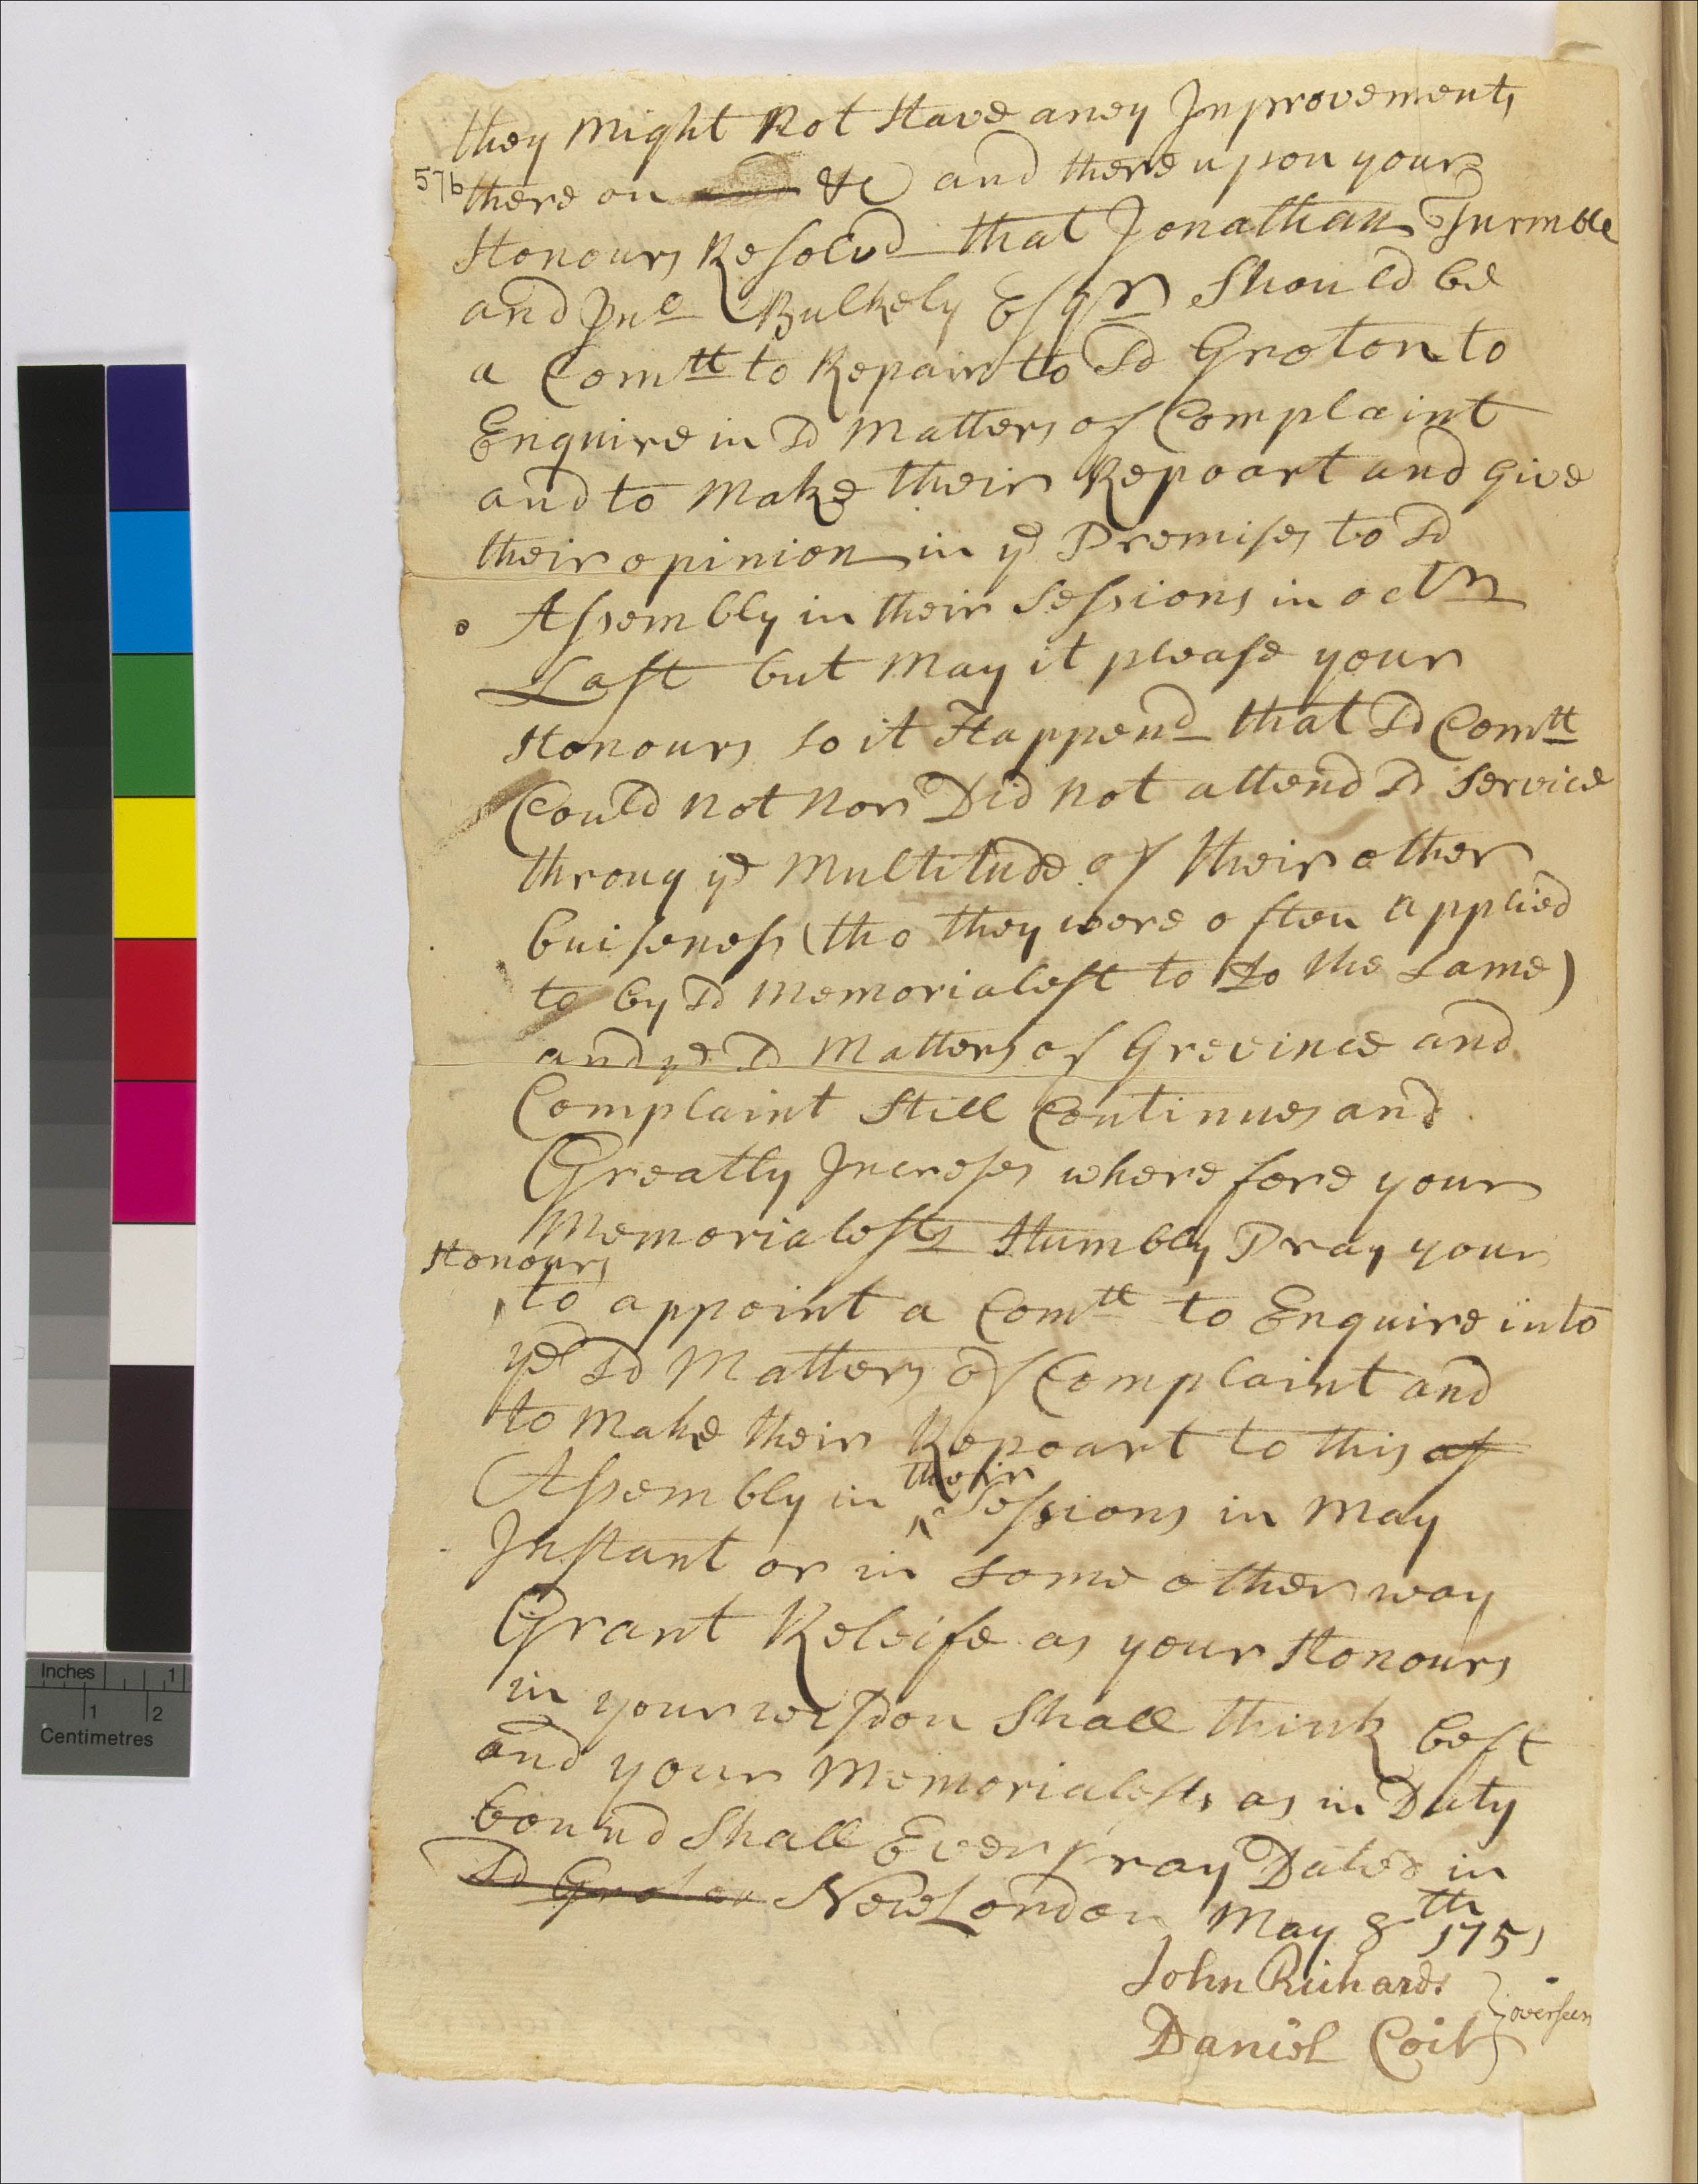 they might not Have aney Inprovements
57b there on and &c and thereupon your
Honours Resolvd that Jonathan Turmble
and Jno Bulkely Esqrs Should be
a Comtt to Repair to Sd Groton to
Enquire in Sd Matters of Complaint
and to Make their Repoart and give
their opinion in ye Premises to Sd
Assembly in their Sessions in octr
Last but May it please your
Honours so it Happend that Sd Comtt
Could not nor Did not attend Sd Service
throug ye Multitude of their other
buiseness (tho they were often applied
to by Sd Memorialest to Do the Same)
and ye Sd Matters of Grevince and
Complaint Still Continues and
Greatly Increses where fore your
Memorialests Humbly Pray your
Honours
to appoint a Comtt to Enquire into
ye Sd Matters of Complaint and
to Make their Repoart to this as
Assembly in their Sessions in May
Instant or in some other way
Grant Releife as your Honours
in your wisdon Shall think best
and your Memorialests as in Duty
bound Shall Ever pray Dated in
Sd Groton New London May 8th 1751
John Richards
overseers
Daniel Coit
Inches 1
1 2
Centimetres